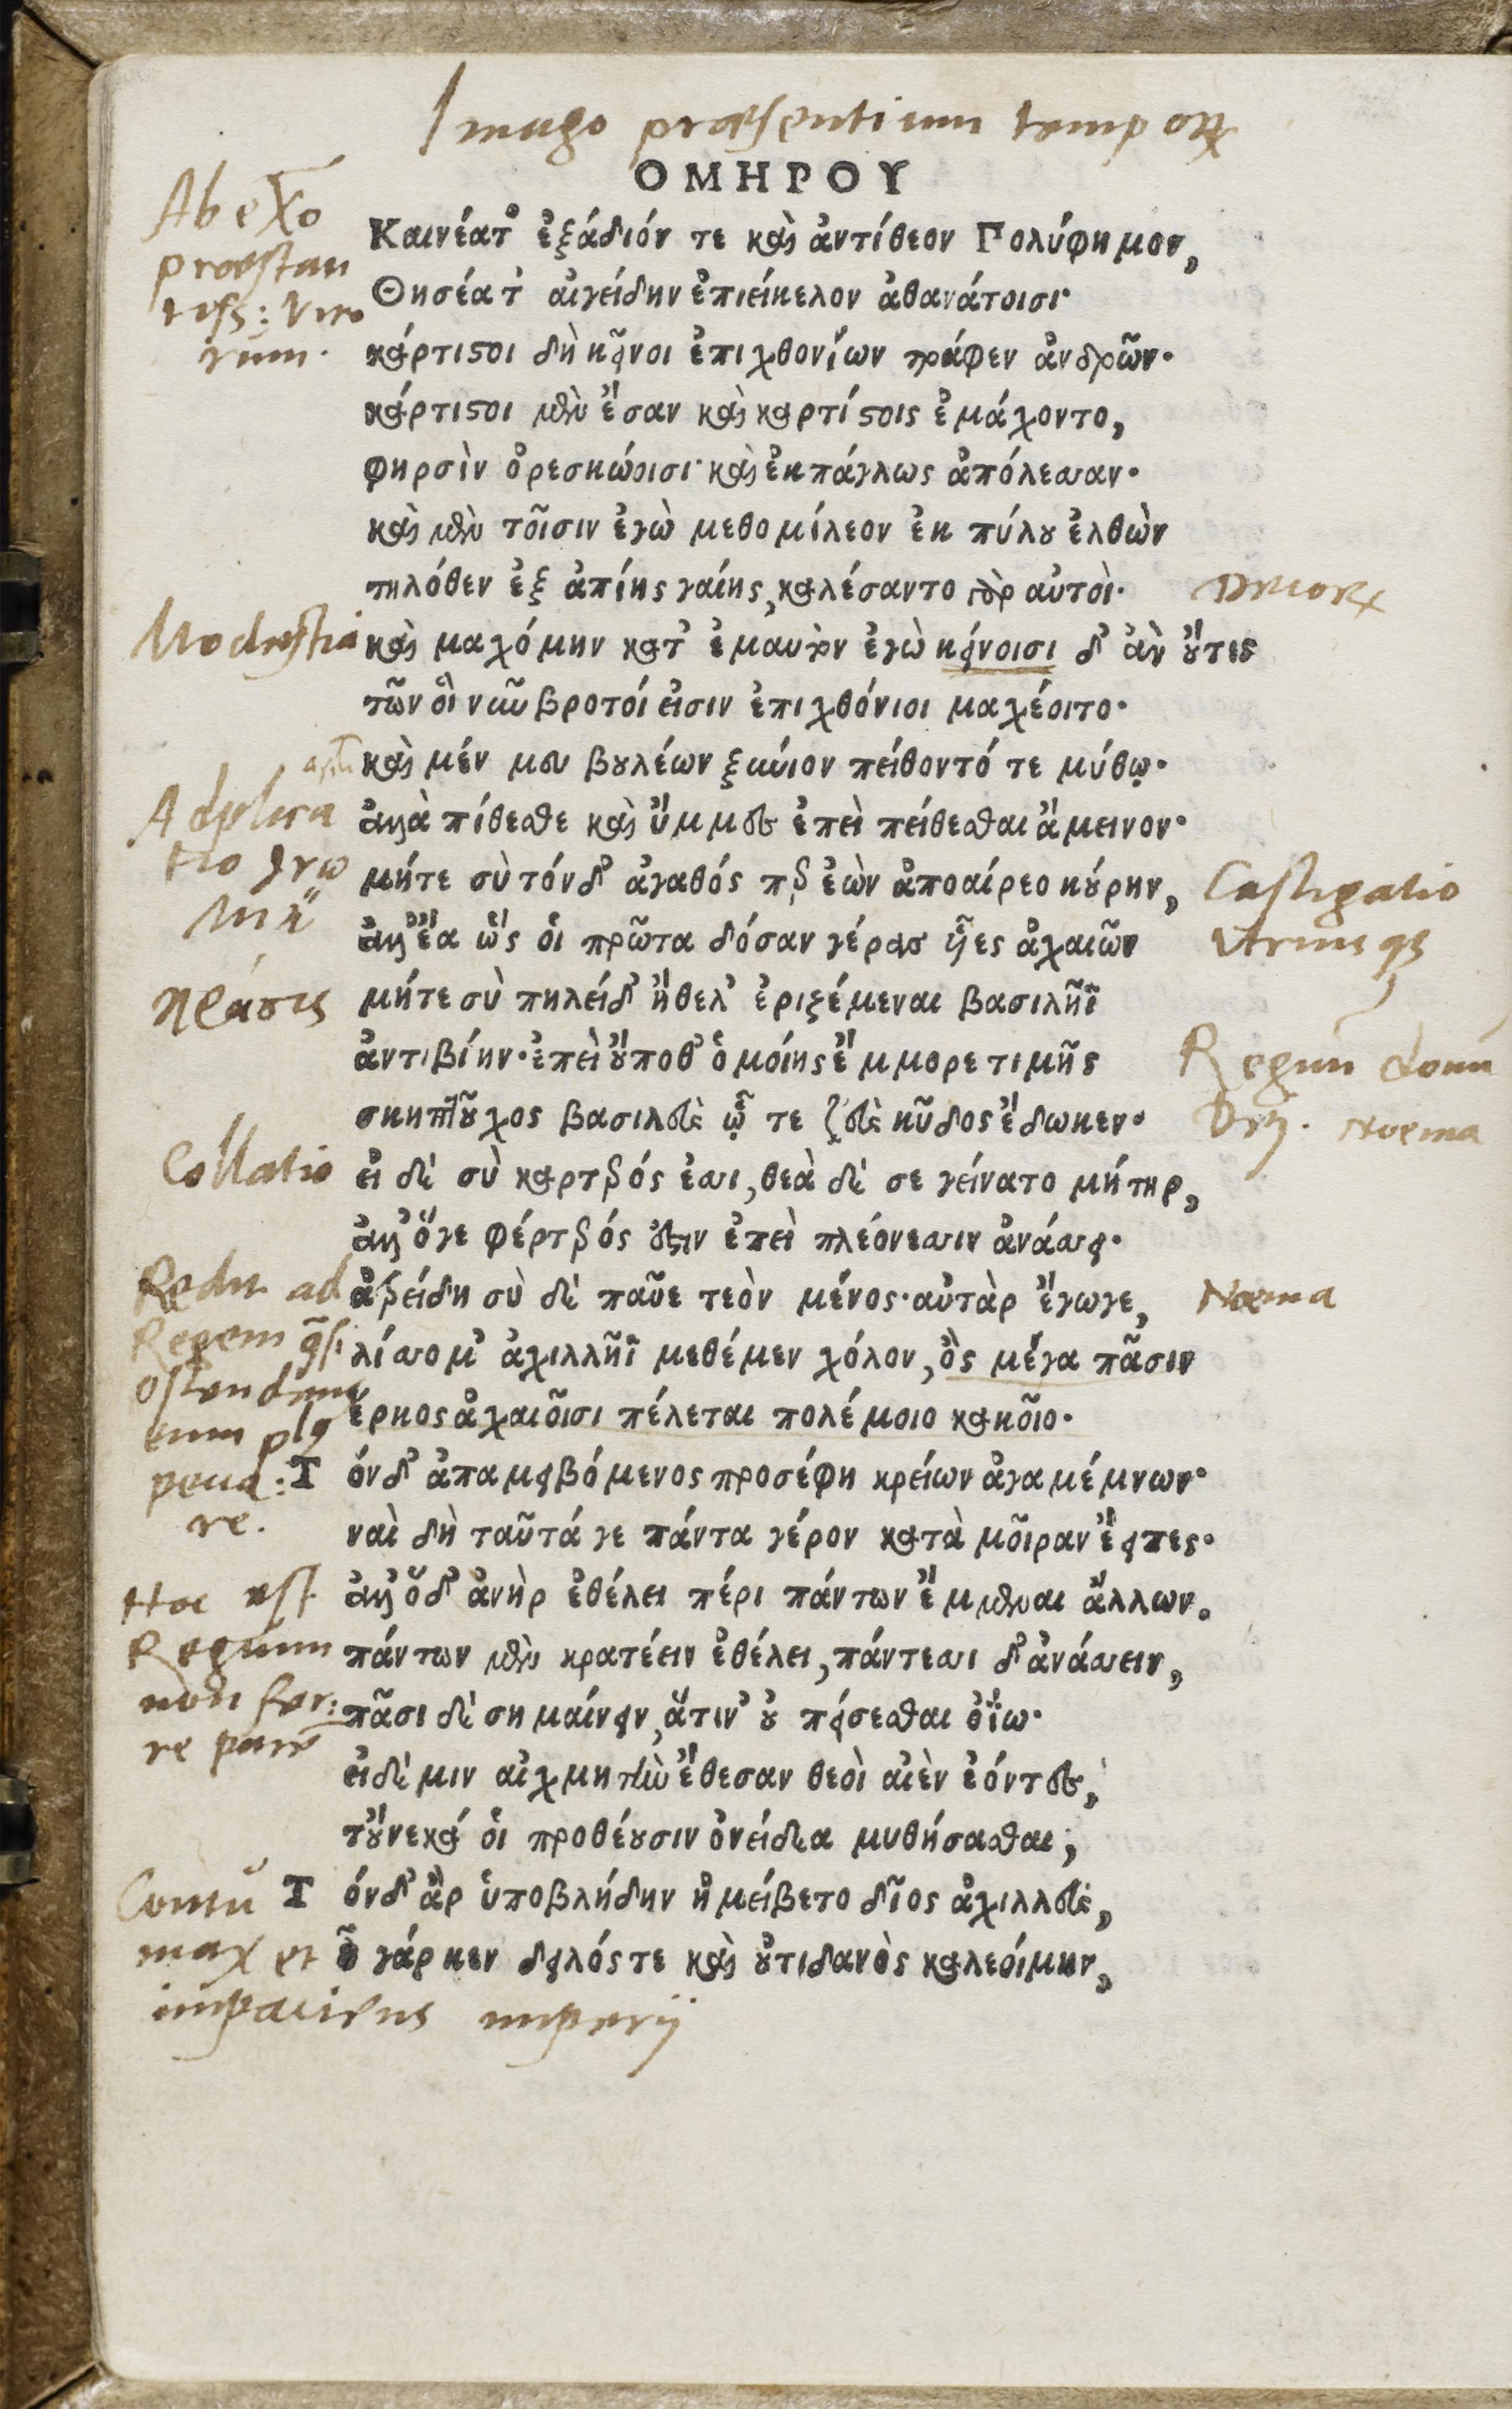 Imago præsentium temporꝝ
ΟΜΗΡΟΥ
Ab exo
præstan
tiss: viro
rum.
Καινέατ' ἐξάδιόν τε καὶ ἀντίθεον Γολύφημον,
Θησέατ' αἰγείδην ἐπιείκελον ἀθανάτοισι·
κάρτιϛοι δὴ κεῖνοι ἐπιχθονίων τράφεν ἀνδρῶν·
κάρτιϛοι μὲν ἔσαν καὶ καρτίϛοις ἐμάχοντο,
φηρσὶν ὀρεσκώοισι· καὶ ἐκπάγλως ἀπόλεσσαν·
καὶ μὲν τοῖσιν ἐγὼ μεθομίλεον ἐκ πύλου ἐλθὼν
τηλόθεν ἐξ ἀπίης γαίης, καλέσαντο γὰρ αὐτοὶ·
Modestia
καὶ μαχόμην κατ' ἐμαυτὸν ἐγὼ κείνοισι δ' ἀν οὔτις
τῶν οἳ νῦν βροτοί εἰσιν ἐπιχθόνιοι μαχέοιτο·
καὶ μέν μευ βουλέων ξωύιον πείθοντό τε μύθῳ·
Adplica
tio γνώ
μη
ἀλλὰ πίθεσθε καὶ ὔμμες ἐπεὶ πείθεσθαι ἄμεινον·
μήτε σὺ τόνδ' ἀγαθός περ ἐὼν ἀποαίρεο κούρην,
Castigatio
utriusqꝫ
ἀλλ' ἔα ὥς οἱ πρῶτα δόσαν γέρας υἷες ἀχαιῶν
κράσις
μήτε σὺ πηλείδ' ἤθελ' ἐριζέμεναι βασιλῆϊ
ἀντιβίην· ἐπεὶ οὔποθ' ὁμοίης ἔμμορε τιμῆς
Regnū donū
Dei. Noema
σκηπτοῦχος βασιλεὺς ᾧ τε ζεὺς κῦδος ἔδωκεν·
Collatio
εἰ δὲ σὺ καρτερός ἐσσι, θεὰ δέ σε γείνατο μήτηρ,
ἀλλ' ὅγε φέρτερός ἐϛιν ἐπεὶ πλεόνεσσιν ἀνάσσει·
Redit ad
Regem
ostendens
eum
re.
ἀτρείδη σὺ δὲ παῦε τεὸν μένος· αὐτὰρ ἔγωγε,
Noema
λίσσομ' ἀχιλλῆϊ μεθέμεν χόλον, ὃς μέγα πᾶσιν
ἕρκος ἀχαιοῖσι πέλεται πολέμοιο κακοῖο·
Τ όνδ' ἀπαμειβόμενος προσέφη κρείων ἀγαμέμνων·
ναὶ δὴ ταῦτά γε πάντα γέρον κατὰ μοῖραν ἔειπες·
Hoc est
Regum
non fer:
re parē
ἀλλ' ὅδ' ἀνὴρ ἐθέλει πέρι πάντων ἔμμεναι ἄλλων.
πάντων μὲν κρατέειν ἐθέλει, πάντεσσι δ' ἀνάσσειν,
πᾶσι δὲ σημαίνειν, ἅτιν' οὐ πείσεσθαι ὀΐω·
εἰ δέ μιν αἰχμητὴν ἔθεσαν θεοὶ αἰὲν ἐόντες,
τοὔνεκά οἱ προθέουσιν ὀνείδεα μυθήσασθαι;
Contu
max et
impatiens imperij
Τ όνδ' ἂρ ὑποβλήδην ἠμείβετο δῖος ἀχιλλεὺς,
ἦ γάρ κεν δειλός τε καὶ οὐτιδανὸς καλεοίμην,